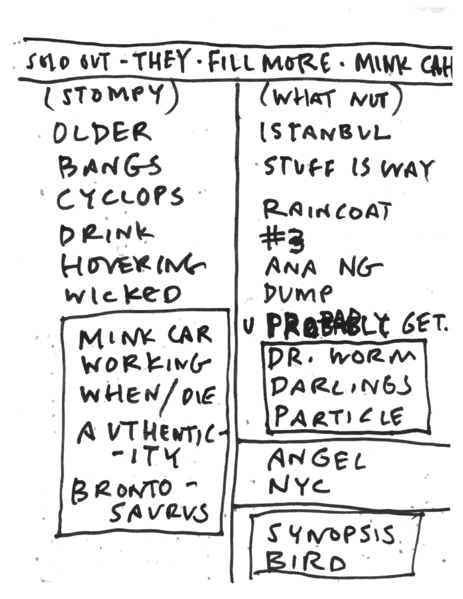 SOLO OUT - THEY · FILL MORE · MINK CAH
(STOMPY)
OLDER
BANGS
CYCLOPS
DRINK
HOVERING
WICKED
MINK CAR
WORKING
WHEN/DIE
AUTHENTIC-
-ITY
BRONTO-
SAURUS
(WHAT NUT)
ISTANBUL
STUFF IS WAY
RAINCOAT
#3
ANA NG
DUMP
U PROBABLY GET.
DR. WORM
DARLINGS
PARTICLE
ANGEL
NYC
SYNOPSIS
BIRD